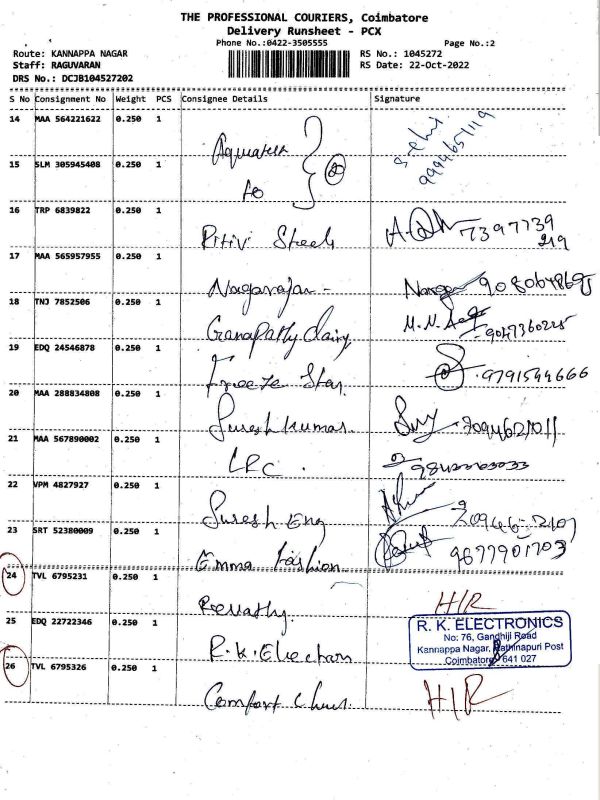 THE PROFESSIONAL COURIERS, Coimbatore
Delivery Runsheet - PCX
Phone No.:0422-3505555 Page No.:2
Route: KANNAPPA NAGAR RS No.: 1045272
Staff: RAGUVARAN RS Date: 22-Oct-2022
DRS No.: DCJB104527202
S No Consignment No Weight PCS Consignee Details Signature
14 MAA 564221622 0.250 1
9994651119
15 SLM 305945408 0.250 1
20
to
16 TRP 6839822 0.250 1
Ritivi Steels 7397739
219
17 MAA 565957955 0.250 1
Nagarajan -
18 TNJ 7852506 0.250 1
Ganapathy dairy 9047360225
19 EDQ 24546878 0.250 1
Freeze Star 9791544666
20 MAA 288834808 0.250 1
Sureshkumar
21 MAA 567890002 0.250 1
LRC.
22 VPM 4827927 0.250 1
Suresh Eng
23 SRT 52380009 0.250 1
Emma Fashion 9677901703
24 TVL 6795231 0.250 1
Revathy H/R
25 EDQ 22722346 0.250 1
R. K. ELECTRONICS
No: 76, Gandhiji Road
Kannappa Nagar, Rathinapuri Post
Coimbatore 641 027
R.K. Electron
26 TVL 6795326 0.250 1
Comfort H/R